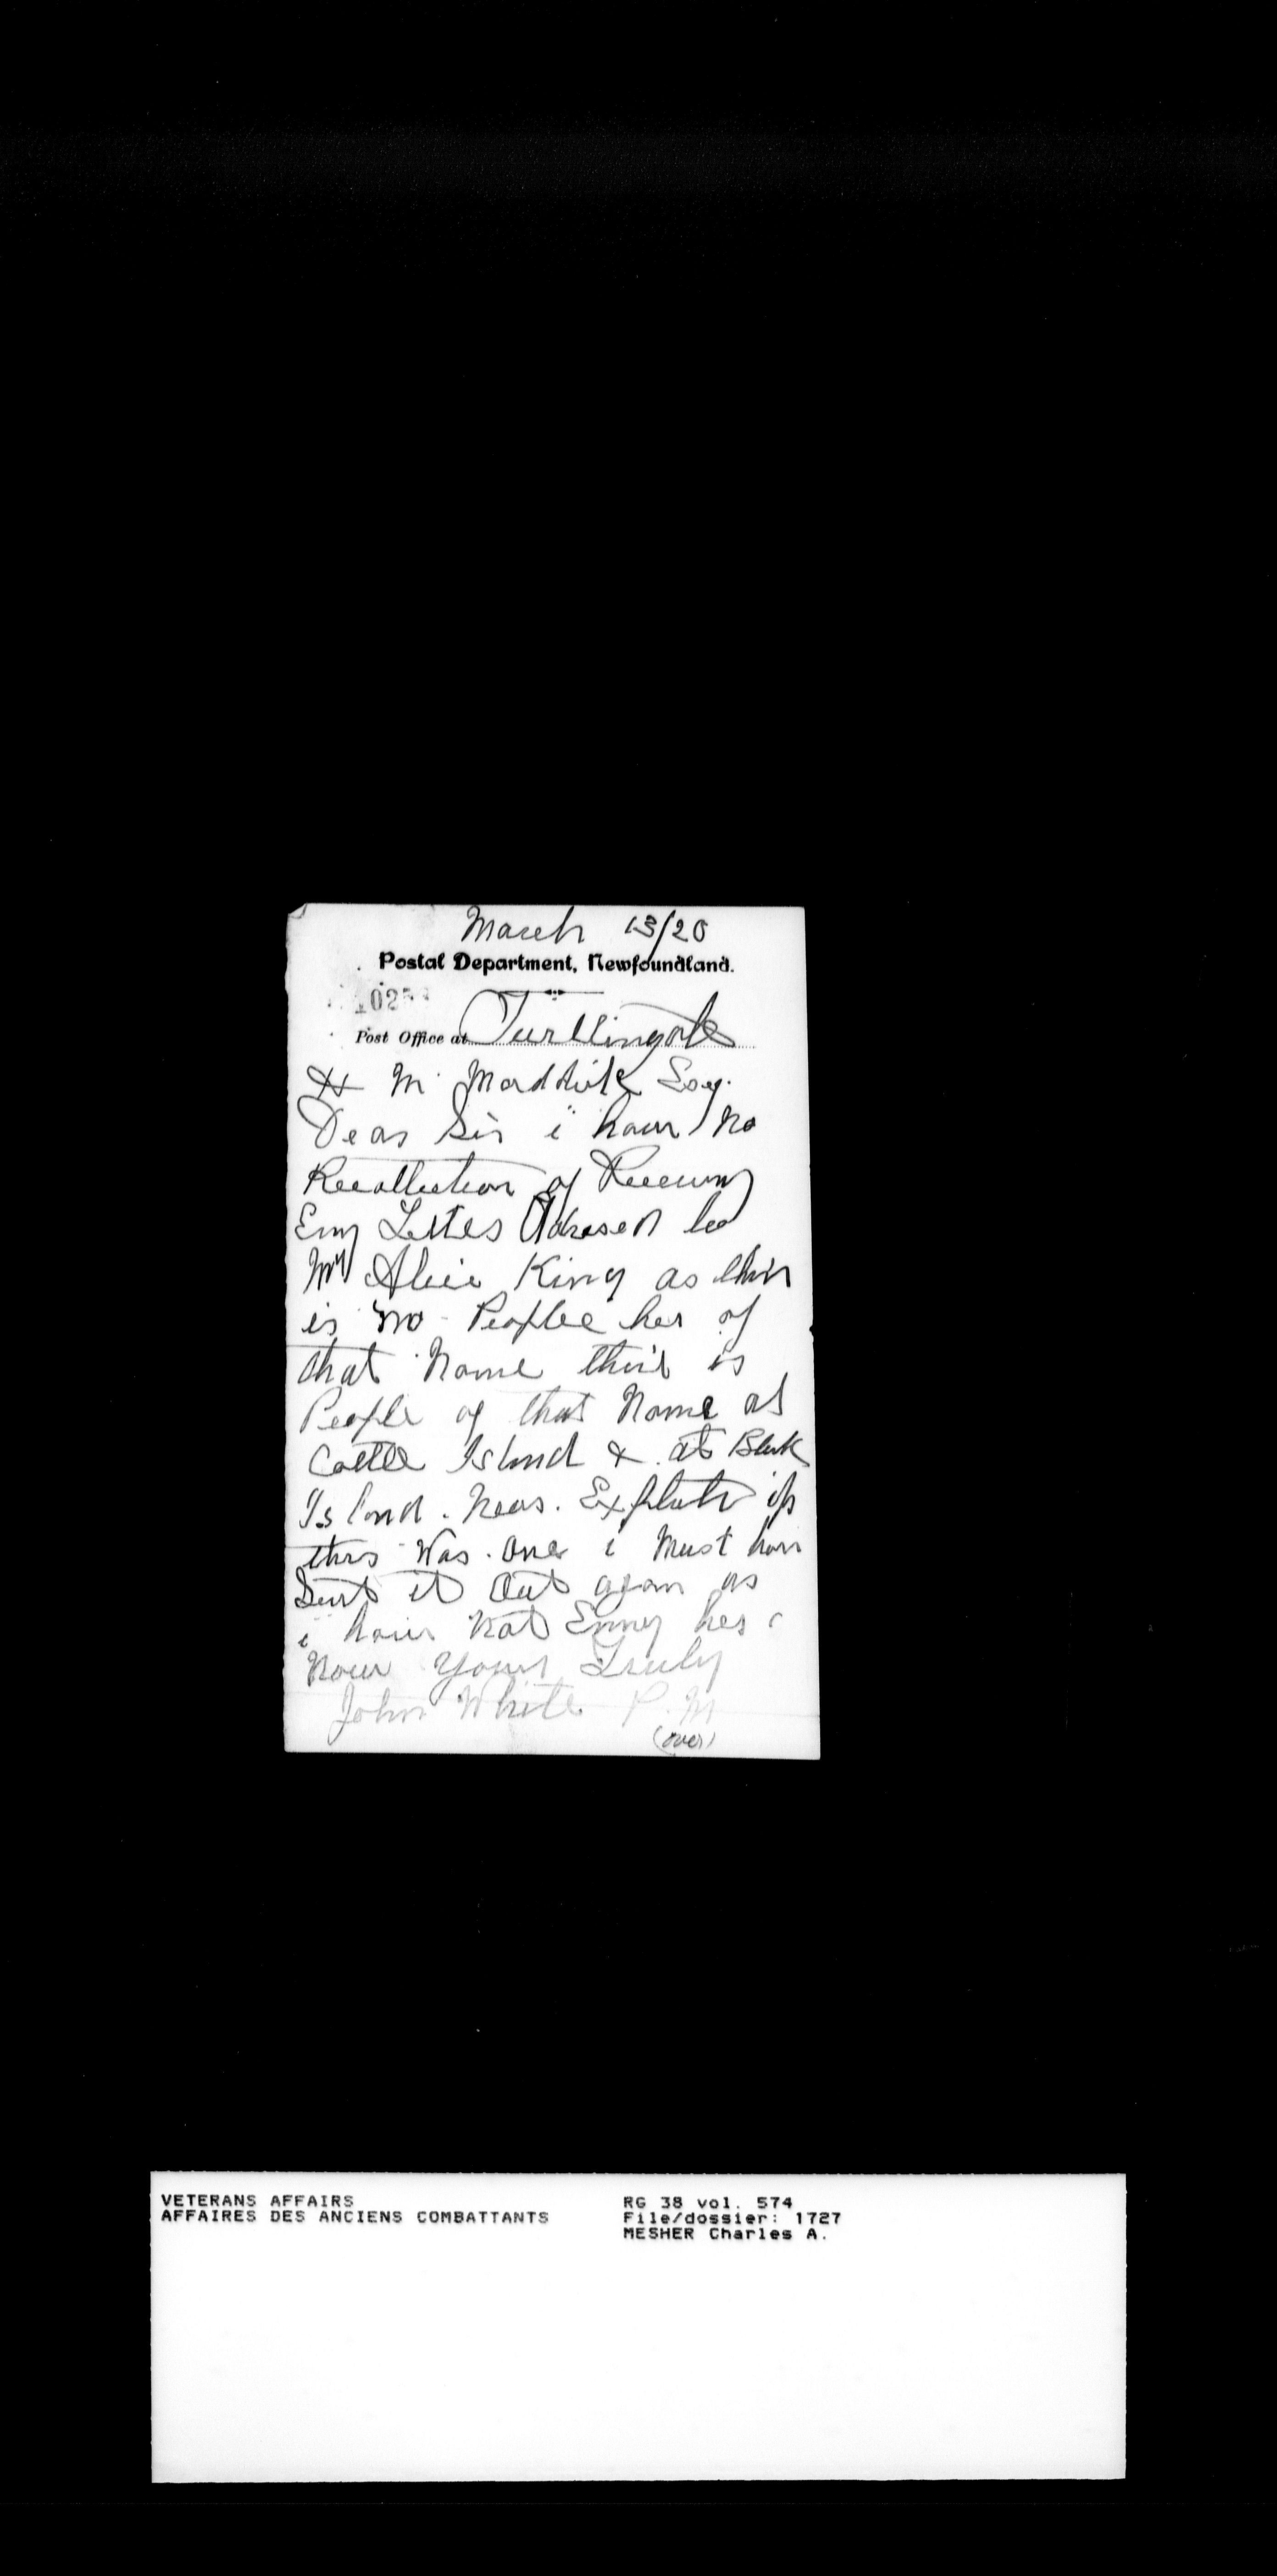 March 13/20
Postal Department, Newfoundland.
Post Office at Twillingate
H M Maddick Esq.
Dear Sir i have no
Recollection of Receving
Eny Letters Adresed to
Mrs Alice King as thir
is no Peoplee her of
that Name their is
People of that Name at
Cottle Island & at Black
Island. Near. Exploits if
thirs Was. One i Must have
Sent it Out again as
i have Not Enney her
Now Yours Truly
John White P. M
(over)
VETERANS AFFAIRS
AFFAIRES DES ANCIENS COMBATTANTS
RG 38 vol. 574
File/dossier: 1727
MESHER Charles A.